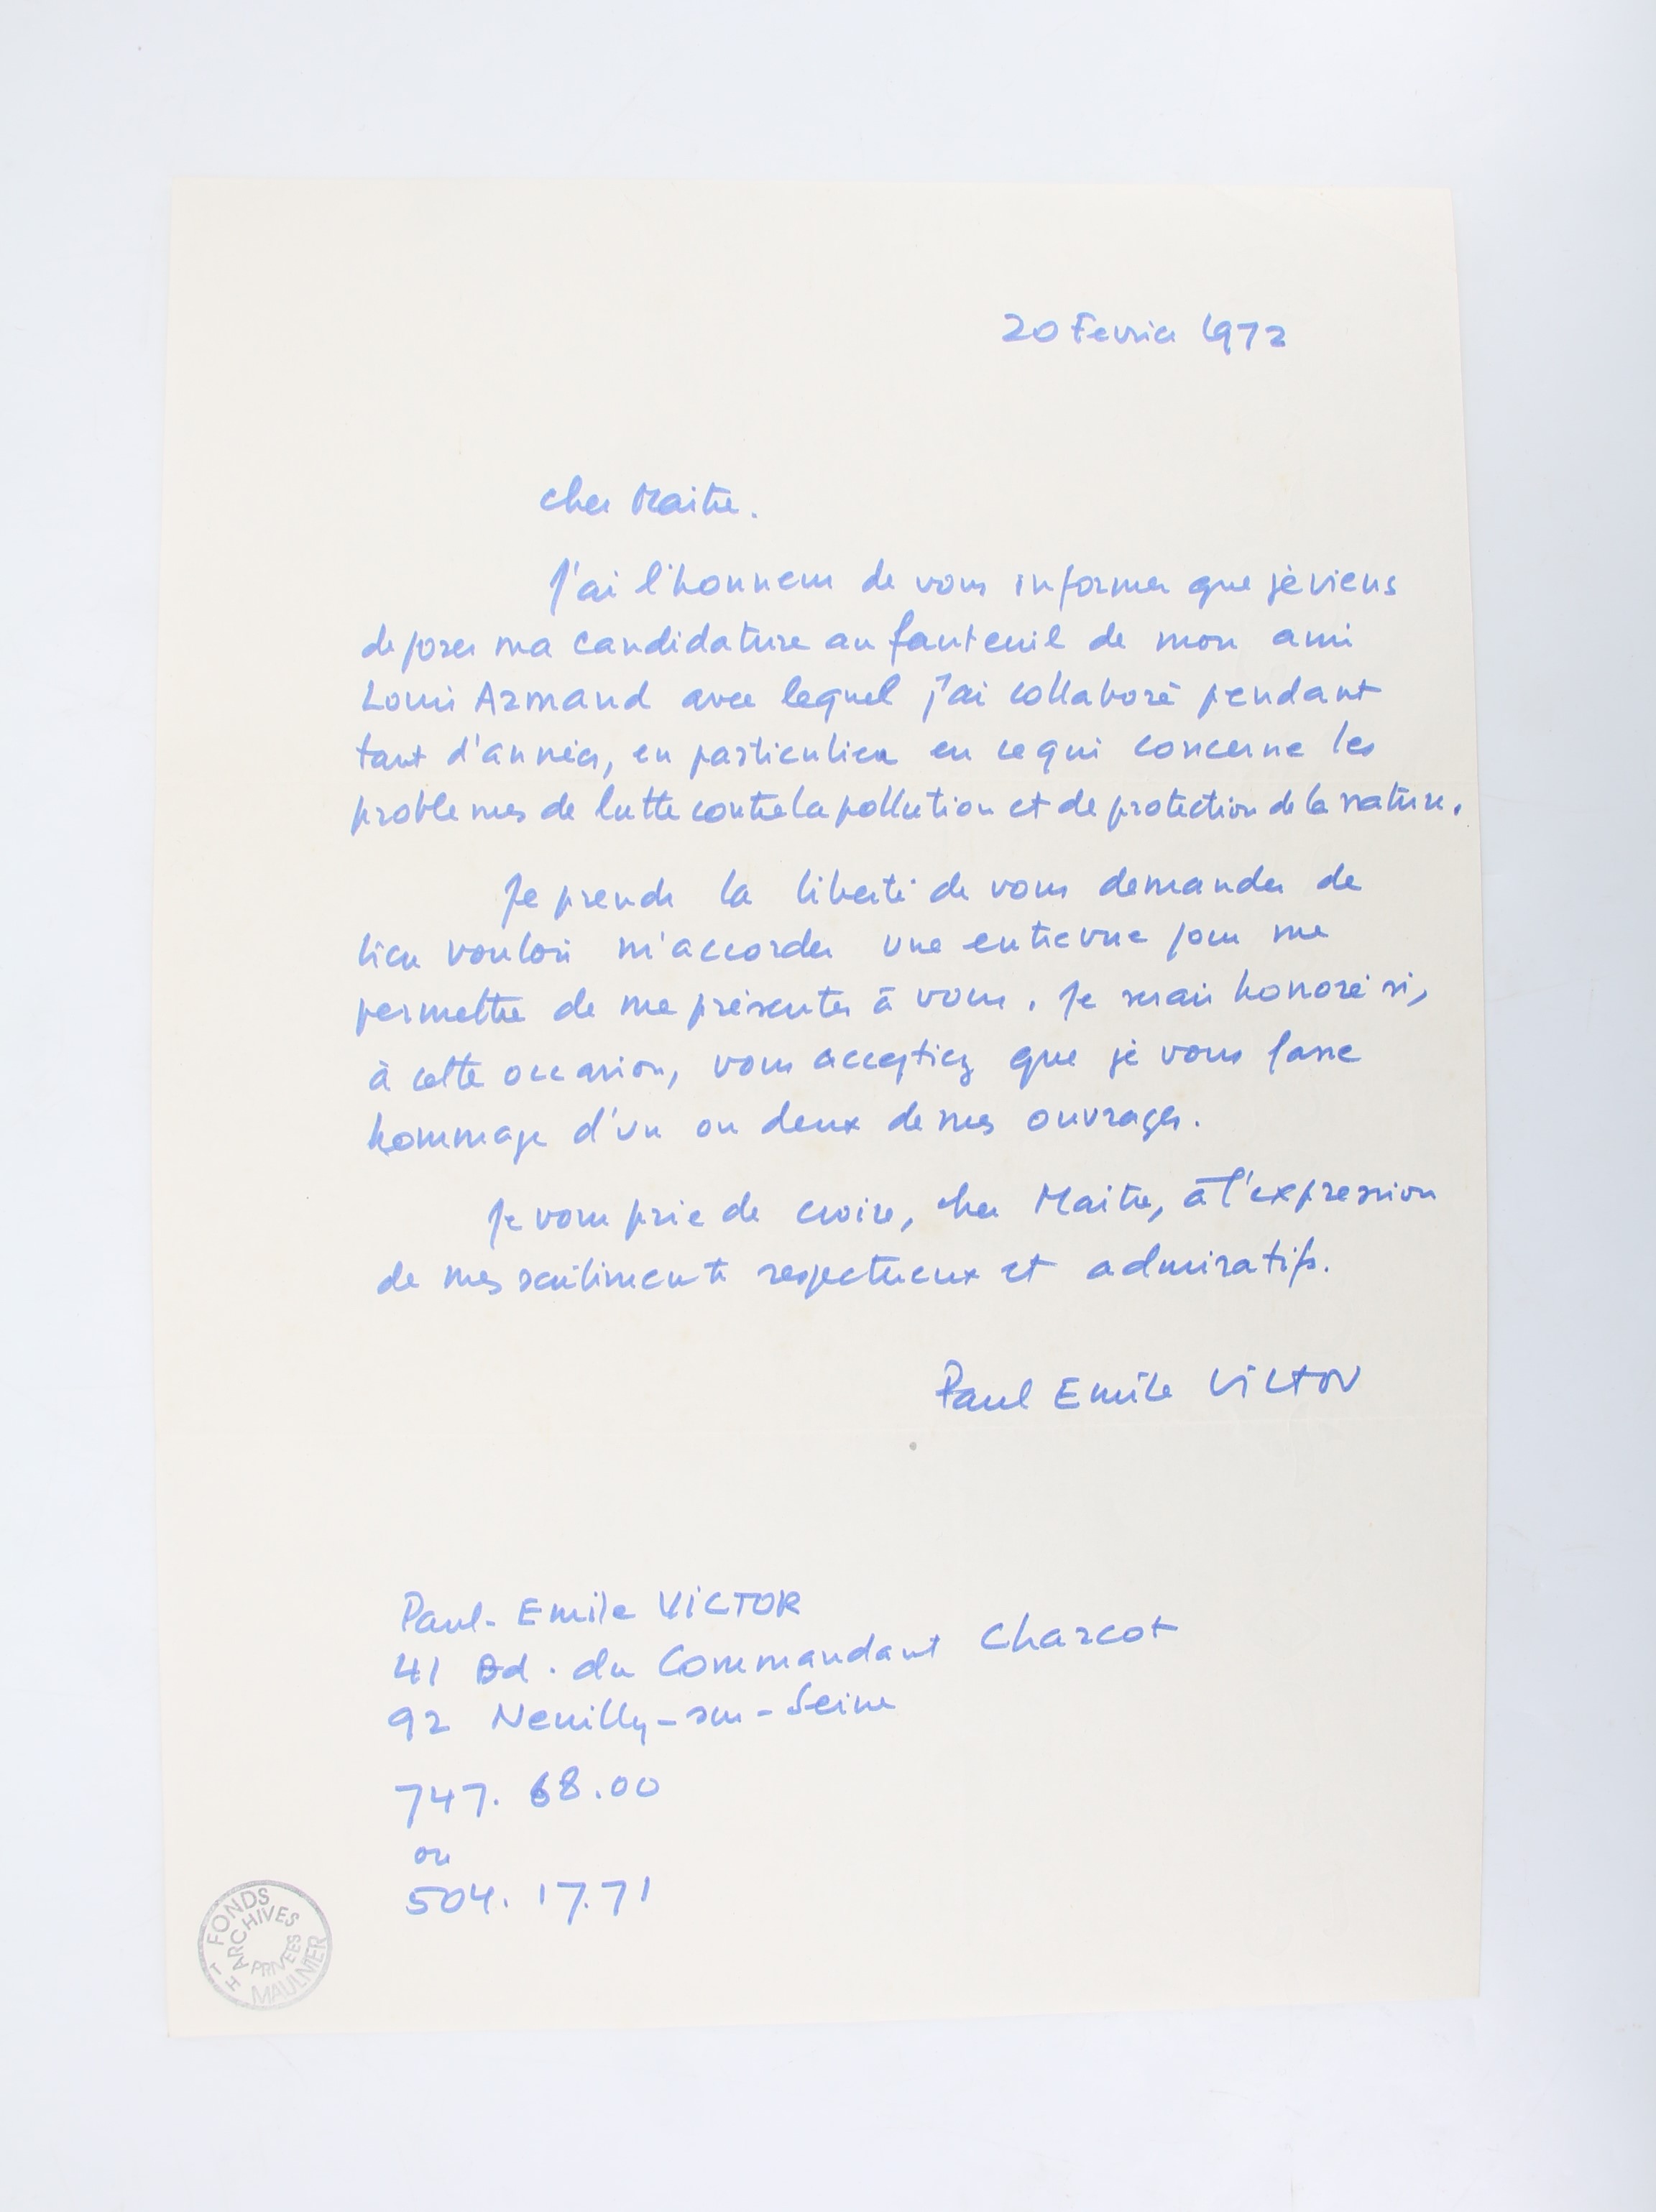 20 Fevrier 1972
cher Maitre.
J'ai l'honneur de vous informer que je viens
de poser ma candidature au fauteuil de mon ami
Louis Armand avec lequel j'ai collaboré pendant
tant d'années, en particulier en ce qui concerne les
problemes de lutte contre la pollution et de protection de la nature.
Je prends la liberté de vous demander de
bien vouloir m'accorder une entrevue pour me
permettre de me présenter à vous. Je serais honoré si,
à cette occasion, vous acceptiez que je vous fasse
hommage d'un ou deux de mes ouvrages.
Je vous prie de croire, cher Maitre, à l'expression
de mes sentiments respectueux et admiratifs.
Paul Emile Victor
Paul-Emile VICTOR
41 Bd. du Commandant Charcot
92 Neuilly-sur-Seine
747. 68.00
ou
504. 17.71
FONDS
ARCHIVES
PRIVEES
TH MAULNIER